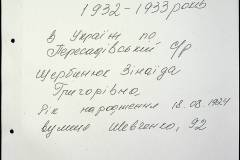 1932-1933 років
в Україні по
Пересадівський с/р
Щербинюк Зінаїда
Григорівна
Рік народження 18.08.1924
вулиця Шевченко, 92